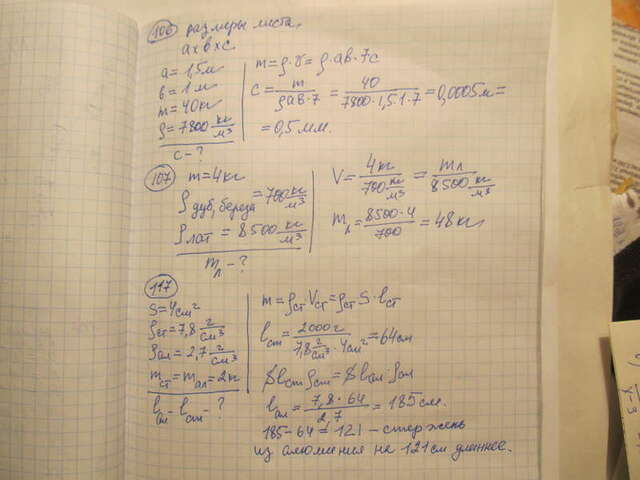 106 размеры листа
a x b x c
a = 1,5 м
b = 1 м
m = 40 кг
ρ = 7800 кг/м³
c - ?
m = ρ·V = ρ·ab·7c
c = m/(ρab·7) = 40/(7800·1,5·1·7) = 0,0005 м =
= 0,5 мм.
107 m = 4 кг
ρ дуб, береза = 700 кг/м³
ρ лат = 8500 кг/м³
mл - ?
V = 4 кг/(700 кг/м³) = mл/(8500 кг/м³)
mл = (8500·4)/700 = 48 кг
117
S = 4 см²
ρст = 7,8 г/см³
ρал = 2,7 г/см³
mст = mал = 2 кг
lал - lст - ?
m = ρст·Vст = ρст·S·lст
lст = 2000 г/(7,8 г/см³·4 см²) = 64 см
Slстρст = Slал·ρал
lал = (7,8·64)/2,7 = 185 см.
185 - 64 = 121 - стержень
из алюминия на 121 см длиннее.